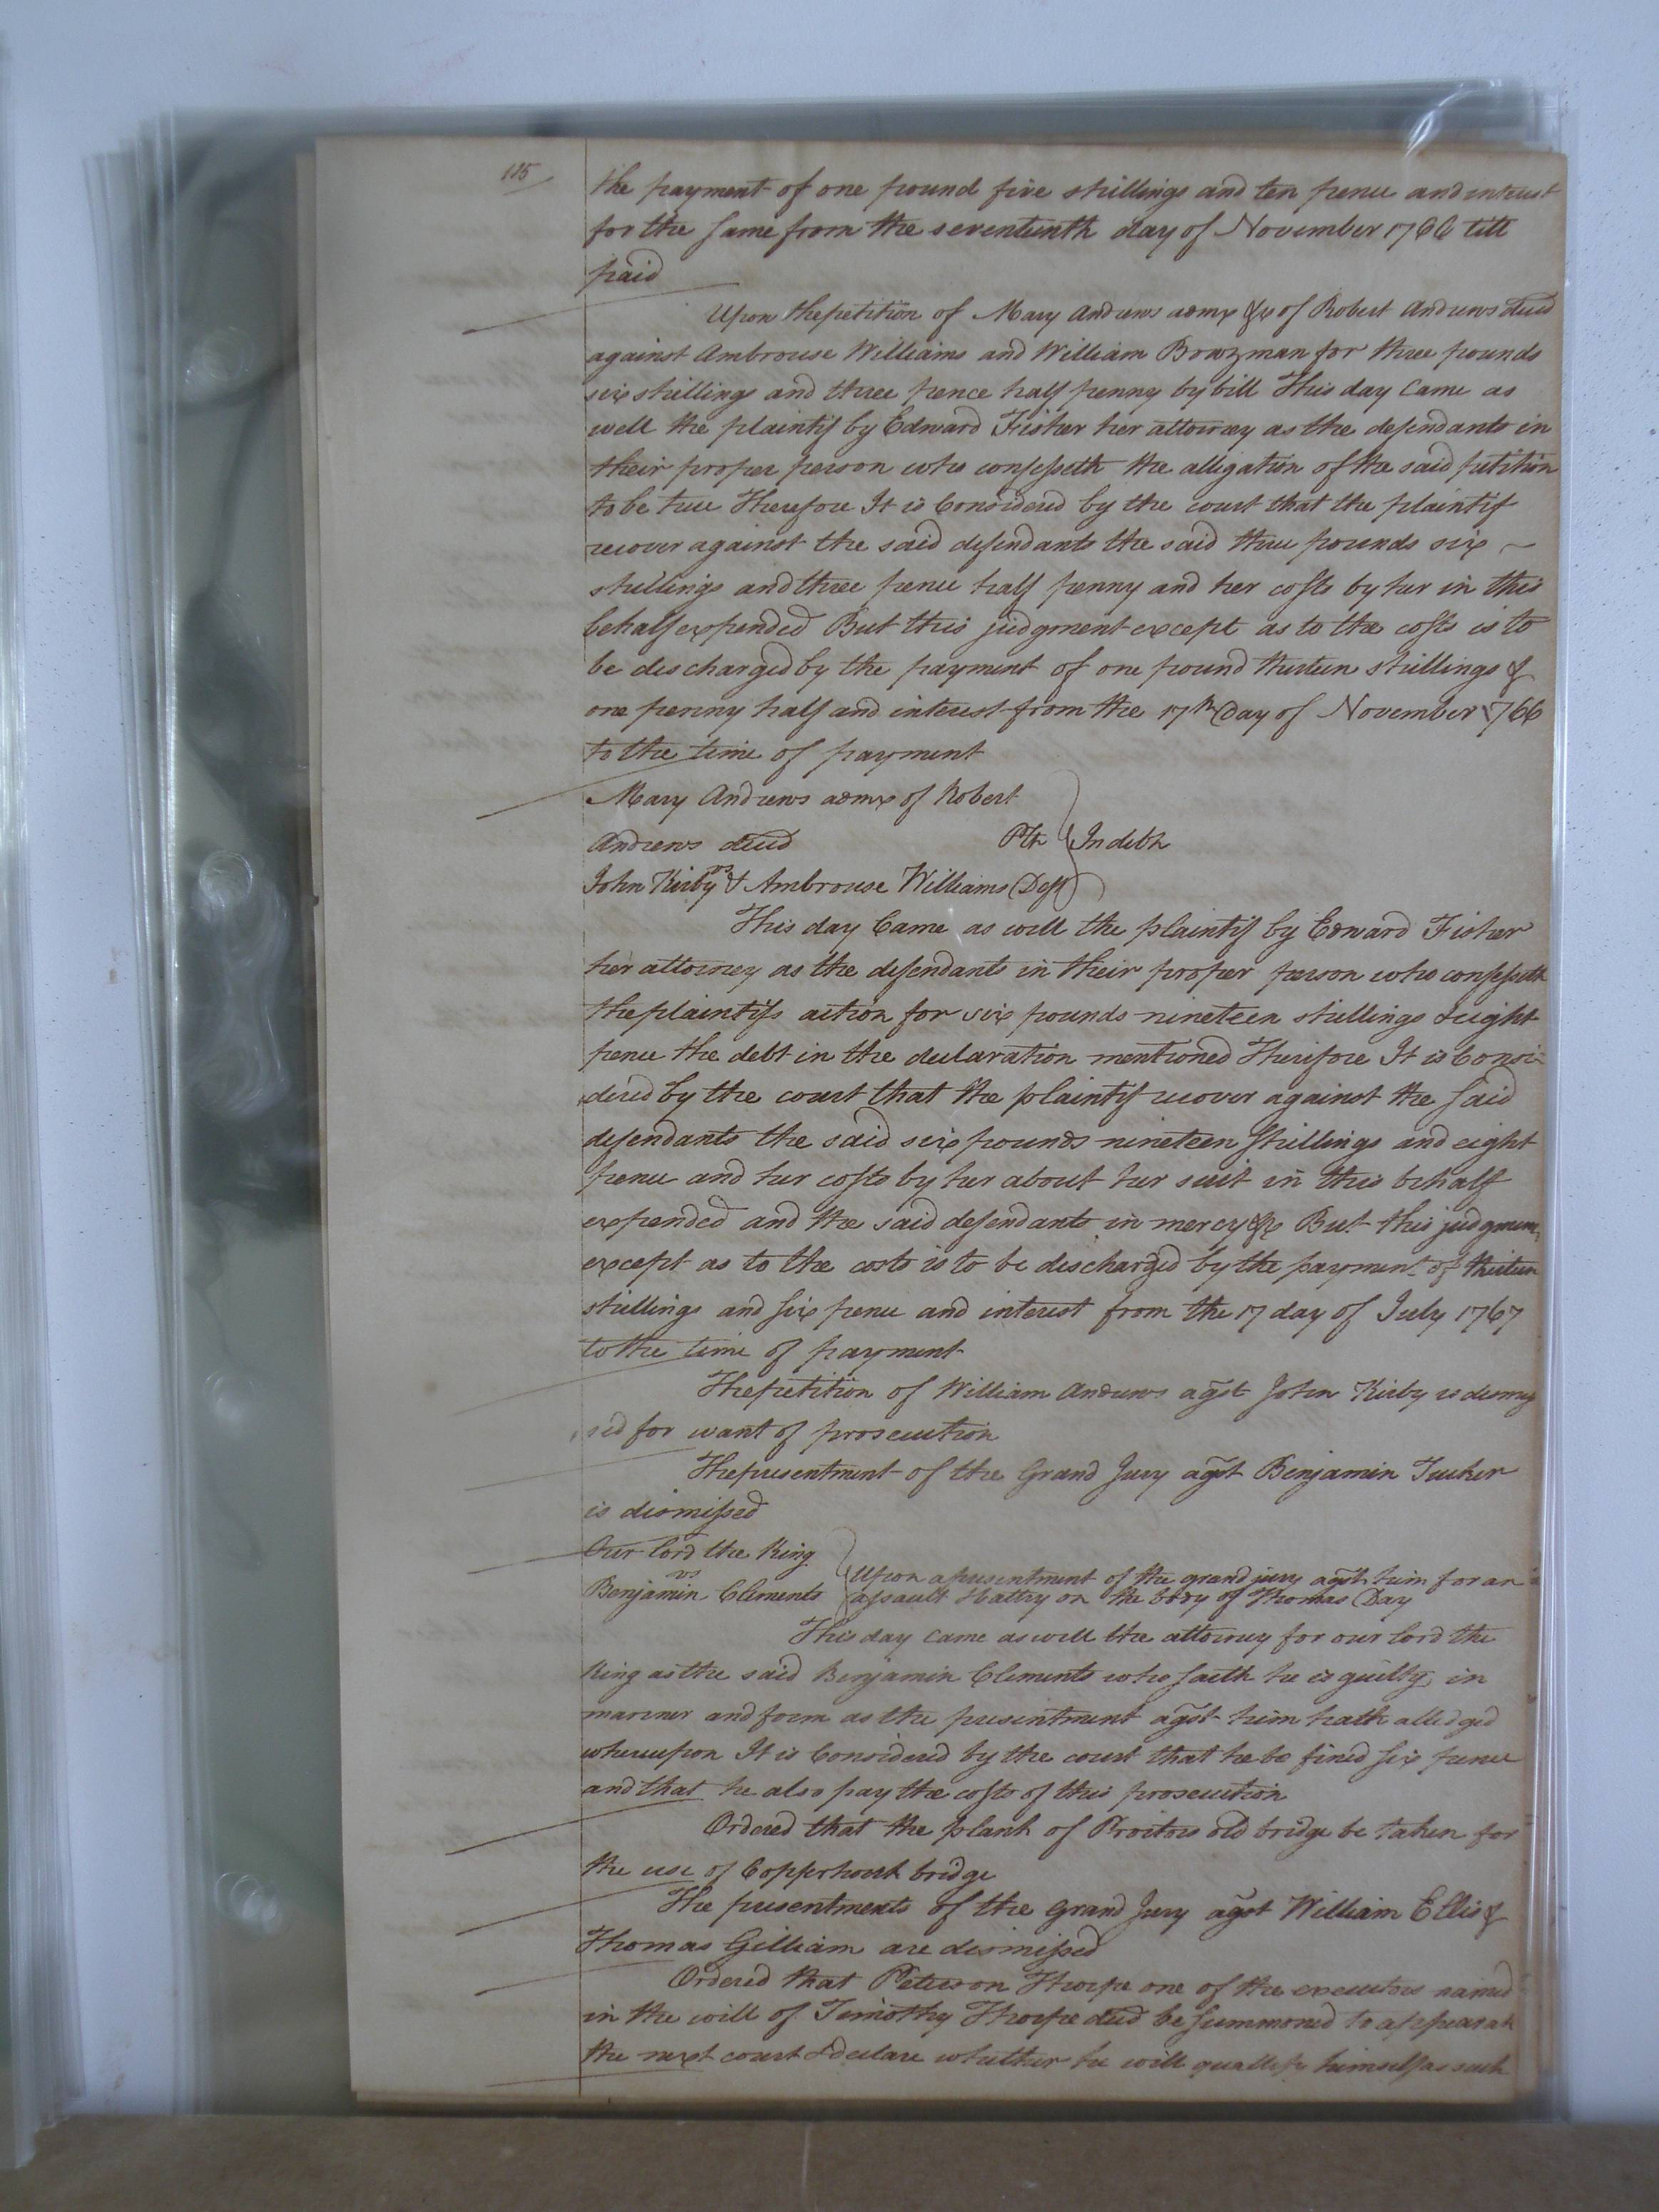 115
the payment of one pound five shillings and ten pence and interest
for the same from the seventeenth day of November 1766 till
paid
Upon the petition of Mary Andrews admx &c of Robert Andrews decd
against Ambrouse Williams and William Bowzman for three pounds
six shilling and three pence half penny by bill This day Came as
well the plaintif by Edward Fisher her attorney as the defendants in
their proper person who confesseth the alligation of the said petition
to be true Therefore It is Considered by the court that the plaintif
recover against the said defendants the said three pounds six ~
shillings and three pence half penny and her costs by her in this
behalf expended But this judgment except as to the costs is to
be discharged by the payment of one pound thirteen shillings &
one penny half and interest from the 17th Day of November 1766
to the time of payment
Mary Andrews admx of Robert
Andrews decd Plt In debt
vs
John Kirby & Ambrouse Williams Deft
This day Came as well the plaintif by Edward Fisher
her attorney as the defendants in their proper person who confesseth
the plaintifs action for six pounds nineteen shillings & eight
pence the debt in the declaration mentioned Therefore It is Consi-
dered by the court that the plaintif recover against the said
defendants the said six pounds nineteen shillings and eight
pence and her costs by her about her suit in this behalf
expended and the said defendants in mercy &c But this judgment
except as to the costs is to be discharged by the payment of thirteen
shillings and six pence and interest from the 17 day of July 1767
to the time of payment
The petition of William Andrews agst John Kirby is dismis
sed for want of prosecution
The presentment of the Grand Jury agst Benjamin Tucker
is dismissed
Our lord the King
vs
Benjamin Clements
Upon a presentment of the grand jury agst him for an
assault & battry on the body of Thomas Day
This day came as well the attorney for our lord the
King as the said Benjamin Clements who saith he is guilty in
manner and form as the presentment agst him hath alledged
whereupon It is Considered by the court that he be fined six pence
and that he also pay the costs of this prosecution
Ordered that the plank of Proctors old bridge be taken for
the use of Copperhonk bridge
The presentments of the Grand Jury agst William Ellis &
Thomas Gilliam are dismissed
Ordered that Peterson Thorpe one of the executors named
in the will of Timothy Thorpe decd be summoned to appear at
the next court & declare whether he will himself as such